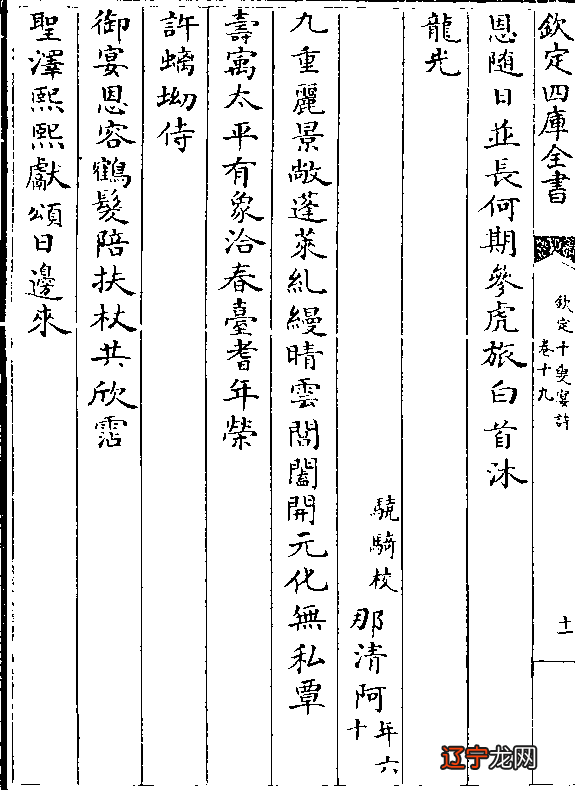 欽定四庫全書
欽定千叟宴詩
卷十九
十一
恩随日並長何期參虎旅白首沐
龍光
驍騎校 那清阿 年六十
九重麗景敞蓬萊糺縵晴雲閶闔開元化無私覃
壽㝢太平有象洽春臺耆年榮
許螭坳侍
御宴恩容鶴髮陪扶杖共欣霑
聖澤熙熙獻頌日邊來
辽宁龙网